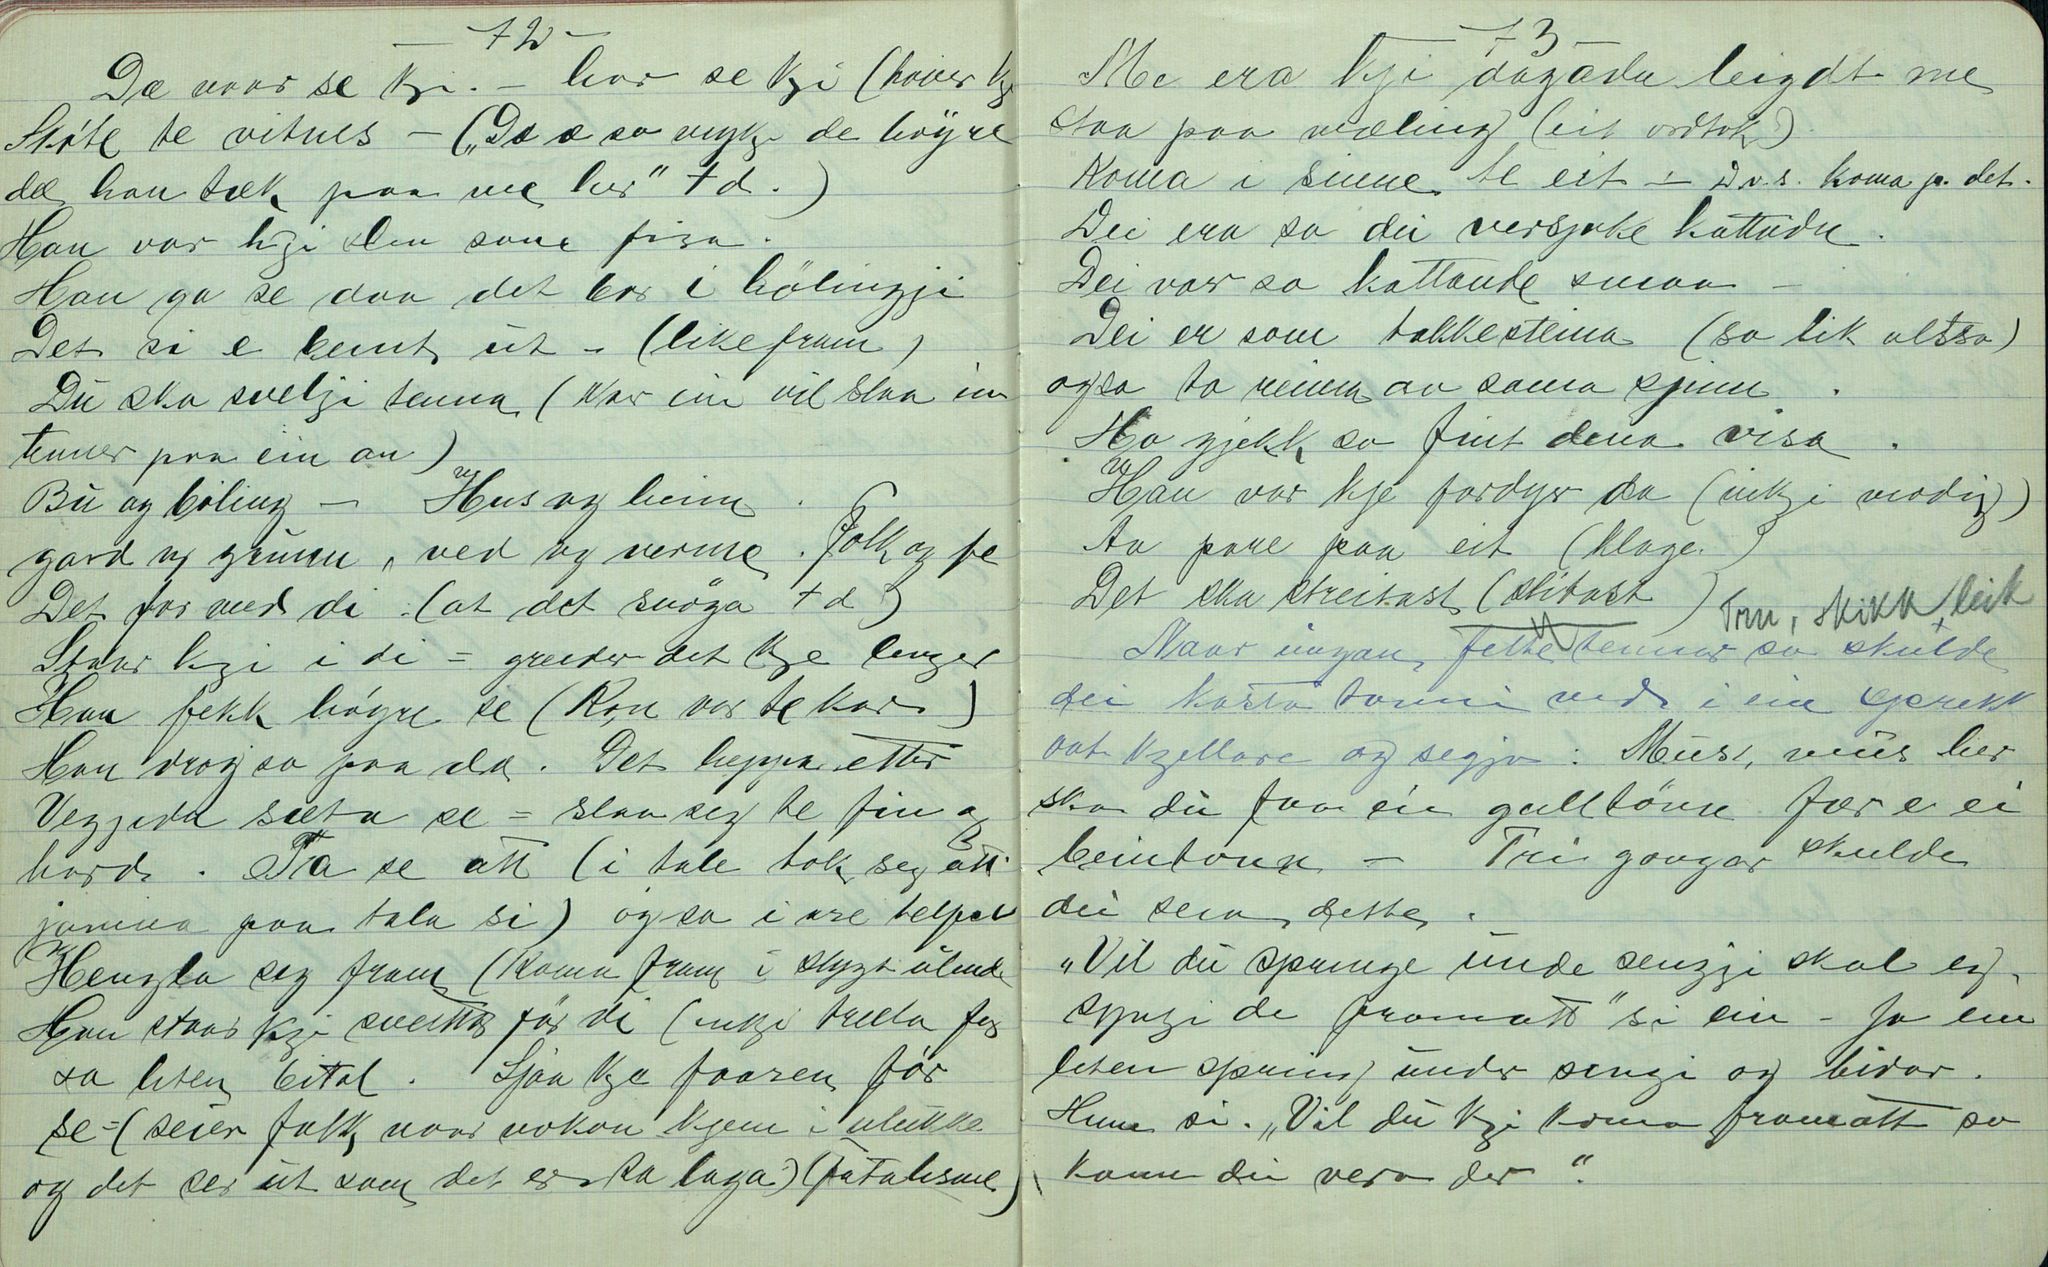 — 72 —
Dæ vaar se kji. – har se kji (høver kje
Skóte te vitnes – („Dæ æ so mykje de höyre
dæ han tæk paa me her" t d.)
Han var kji den som fisa.
Han ga se daa det bar i hölingji
Det si e beint ut – (like fram)
Du ska svelgji tenna (Nar ein vil slaa inn
tenner paa ein an)
Bu og böling – Hus og heim.
gard og grunn, ved og verme. Folk og fe
Det for med di. (at det snöga t d)
Staar kji i di = greider det kje lenger
Han fekk höyre se (Ron var te kar)
Han drog so paa dæ. Det heppa etter
Veggjeda sæta se = slaa seg te fin og
hard. Ta se att (i tale tok seg att
jamna paa tala si) ogso i are telfel
Hengla seg fram (Koma fram i stygt ulende
Han staar kji sveitte for di (inkji treeta for
so liten bital. Sjaa kje faaren för
se = (seier folk, naar nokon kjem i ulukke
og det ser ut som det er so laga) (fatalisme)
— 73 —
Me era kji dagada leigdt me
staa paa mæling (eit ordtok)
Koma i sinne te eit – d.v.s. koma p. det.
Dei era so dei versjuke kattudn.
Dei var so kattande smaa –
Dei er som takkesteina (so lik altso)
ogso ta reima av soma skjinn.
Ho gjekk so fint dena visa.
Han var kje fordyr da (inkji modig)
Aa pare paa eit (klage.)
Det ska streitast (slitast) Tru, skikk, leik
Naar ungan felte tennar so skulde
dei kasta tonni ned i ein sprekk
aat kjellare og segja: Mus, mus her
ska du faa ein gulltönn fær e ei
beintonn – Tri gaagar skulde
dei seia dette.
„Vil du springe unde sengji skal eg
spygji de framatt" si ein – Ja ein
liten spring under sengi og bidar.
Hine si. „Vil du kji koma framatt so
kann du vera der".